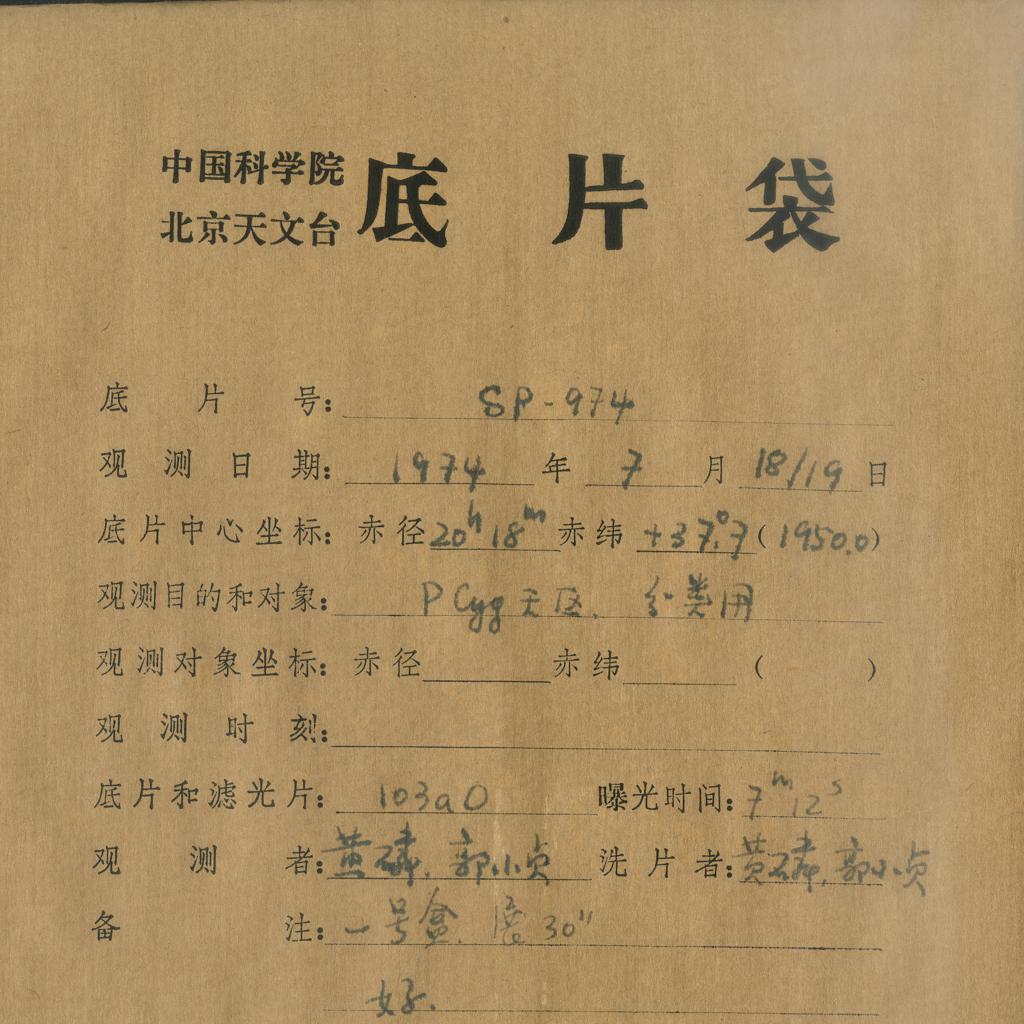 中国科学院
北京天文台
底片袋
底片号: SP-974
观测日期: 1974 年 7 月 18/19 日
底片中心坐标: 赤径 20h 18m 赤纬 +37°.7 (1950.0)
观测目的和对象: P Cyg 天区. 分类用
观测对象坐标: 赤径 赤纬 ( )
观测时刻:
底片和滤光片: 103aO 曝光时间: 7m 12s
观测者: 黄磷, 郭小贞 洗片者: 黄磷, 郭小贞
备注: 一号盒. 30"
好.